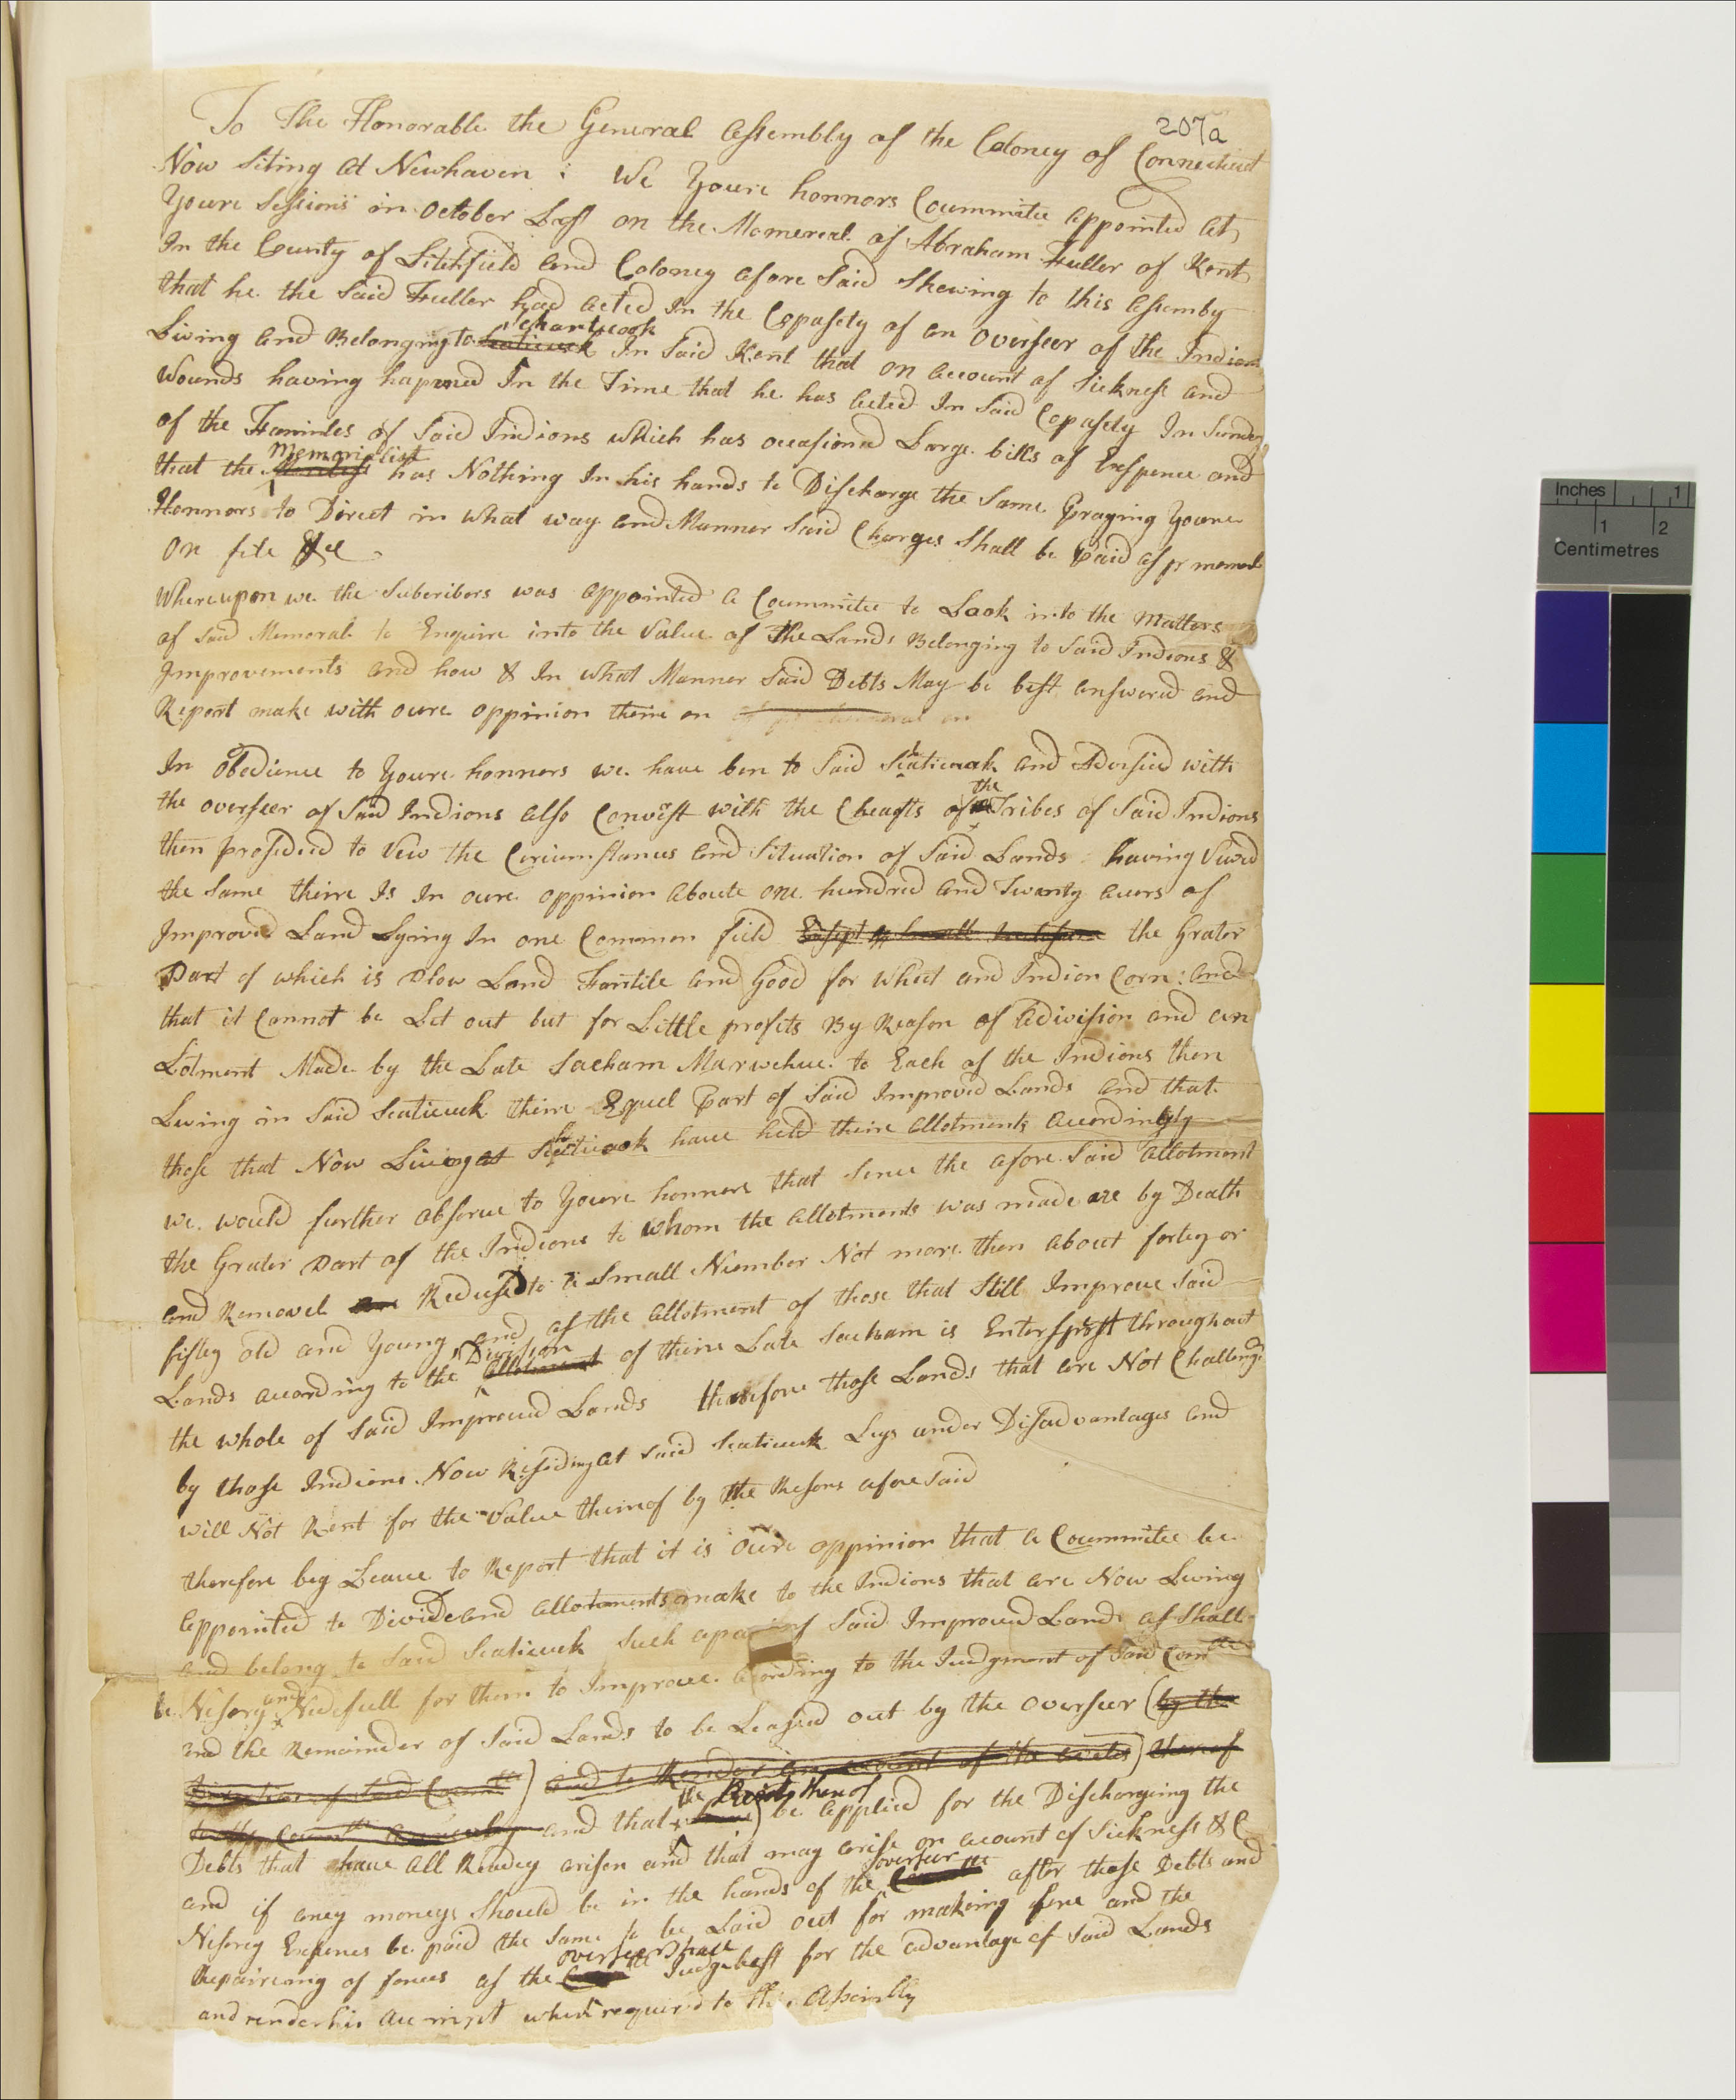 207a
To The Honorable the General Assembly of the Coloney of Connecticut
Now Siting at Newhaven : We Youre honnors Coummitee appointed At
Youre Sessions in October Last on the Momereal of Abraham Fuller of Kent
In the County of Litchfield and Coloney afore Said Shewing to this assemby
that he the Said Fuller had acted In the Capasety of an Overseer of the Indions
Living and Belonging to Schartecook In Said Kent that on account of Sickness and
Wounds having hapned In the Time that he has acted In Said Capasety In
of the Faminles of Said Indions which has occasioned Large bills of Exspence and
that the Memorialist has Nothing In his hands to Discharge the Same Praying Youre
Honnors to Direct in what way and Manner Said Charges Shall be Paid as pr
On file &c
Whereupon we the Subcribors was appointed a Coummitee to Look into the Matters
of said Memoral to Enquire into the Value of The Lands Belonging to Said Indions &
Improvements and how & In what Manner Said Debts May be best answered and
Report make with oure oppinion theire on
In Obedience to Youre honners we have ben to Said Scaticook and Advised with
the overseer of Said Indions also Convest with the Cheafts of the Tribes of Said Indions
then proseded to Vew the Circumstances and Situation of Said Lands having Vewed
the Same theire Is In oure oppinion aboute one hundred and Twenty acurs of
Improved Land Lying In one Common field the Grater
Part of which is Plow Land Fartile and Good for Wheet and Indion Corn : and
that it Cannot be Let out but for Little profits By Reason of a Division and an
Lotment Made by the Late Sacham Marwehue to Each of the Indions then
Living in Said Scaticuck theire Equel Part of Said Improved Lands and that
those that Now Living at Schaticook have held theire allotments accordingly
we would further obserue to Youre honners that Sence the afore Said allotment
the Grater Part of the Indions to whom the allotments was made are by Death
and Removel are Redused to a Small Number Not more then about fortey or
fiftey old and Young and as the allotment of those that Still Improve Said
Lands according to the Division allotment of theire Late Sacham is Entersperst throughout
the whole of Said Improved Lands therefore those Lands that are Not Challeng
by those Indions Now Residing at said Scaticuck Leys under Disadvantages and
will Not Rent for the Value theireof by the Resons afore Said
therefore beg Leave to Report that it is oure oppinion that a Coummitee be
appointed to Divide and allotments make to the Indions that are Now Living
and belong to Said Scaticuck Such a part of Said Improved Lands as Shall
be Nesory and Nedefull for them to Improve acording to the Judgment of Said Comtte
and the Remainder of Said Lands to be Leased out by the Overseer (by the
Direction of Said Comtte) and to Render an account of the) thereof
and that the Rents thereof be applied for the Discharging the
Debts that have All Readey arisen and that may arise on acount of Sickness &C
and if aney moneys Should be in the hands of the overseer after those Debts and
Nesorey Expences be paid the Same to be Laid out for makeing fence and the
Repaireing of fences as the overseer shall Judge best for the advantage of Said Lands
and render his account when required to this Assembly